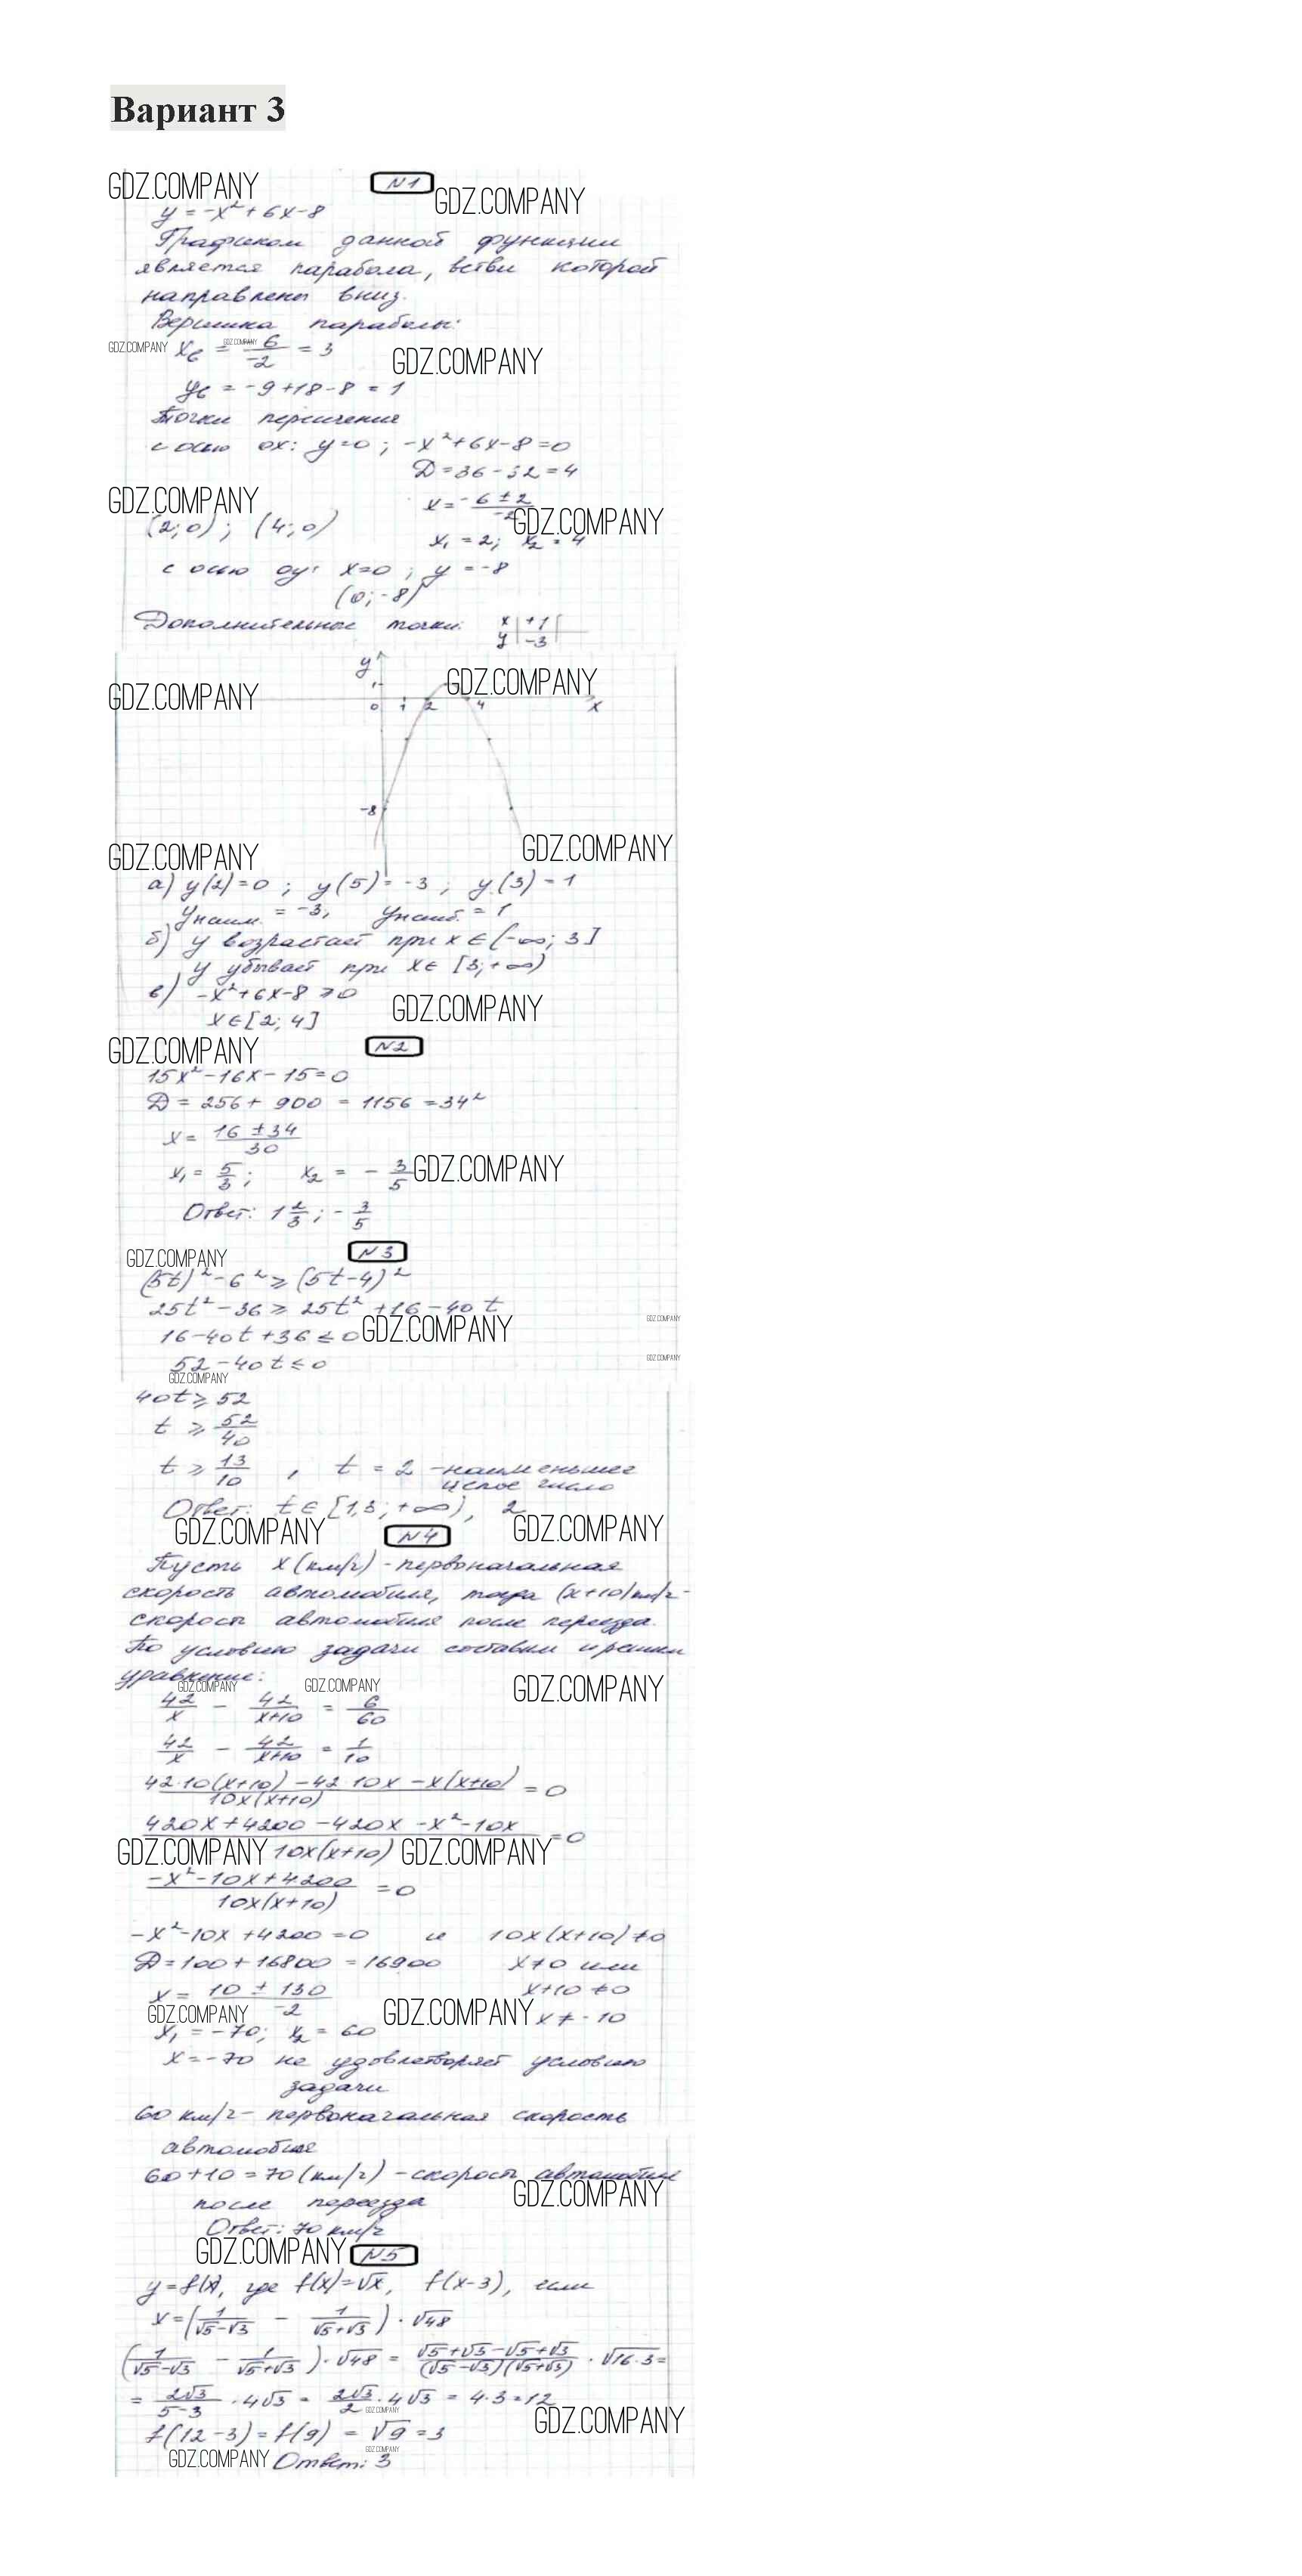 Вариант 3
GDZ.COMPANY
N1
GDZ.COMPANY
y = -x² + 6x - 8
Графиком данной функции
является парабола, ветви которой
направлены вниз.
Вершина параболы:
GDZ.COMPANY x₆ = 6/-2 = 3
GDZ.COMPANY
GDZ.COMPANY
y₆ = -9 + 18 - 8 = 1
Точки пересечения
с осью ox: y=0; -x² + 6x - 8 = 0
D = 36 - 32 = 4
GDZ.COMPANY
x = -6 ± 2/-2
GDZ.COMPANY
(2; 0); (4; 0)
x₁ = 2; x₂ = 4
с осью oy: x=0; y = -8
(0; -8)
Дополнительные точки: x | +1 |
y | -3 |
y
GDZ.COMPANY
GDZ.COMPANY
1
0 1 2 4 x
-8
GDZ.COMPANY
GDZ.COMPANY
а) y(2) = 0; y(5) = -3; y(3) = 1
yнаим. = -3, yнаиб. = 1
б) y возрастает при x ∈ (-∞; 3]
y убывает при x ∈ [3; +∞)
в) -x² + 6x - 8 ≥ 0
GDZ.COMPANY
x ∈ [2; 4]
GDZ.COMPANY
N2
15x² - 16x - 15 = 0
D = 256 + 900 = 1156 = 34²
x = 16 ± 34/30
x₁ = 5/3; x₂ = - 3/5
GDZ.COMPANY
Ответ: 1 2/3; - 3/5
GDZ.COMPANY
N3
(5t)² - 6² ≥ (5t - 4)²
25t² - 36 ≥ 25t² + 16 - 40t
GDZ.COMPANY
16 - 40t + 36 ≤ 0
GDZ.COMPANY
52 - 40t ≤ 0
GDZ.COMPANY
GDZ.COMPANY
40t ≥ 52
t ≥ 52/40
t ≥ 13/10, t = 2 - наименьшее
целое число
Ответ: t ∈ [1,3; +∞), 2
GDZ.COMPANY
N4
GDZ.COMPANY
Пусть x (км/ч) - первоначальная
скорость автомобиля, тогда (x+10) км/ч -
скорость автомобиля после переезда.
По условию задачи составим и решим
уравнение:
GDZ.COMPANY
GDZ.COMPANY
GDZ.COMPANY
42/x - 42/x+10 = 6/60
42/x - 42/x+10 = 1/10
42·10(x+10) - 42·10x - x(x+10)/10x(x+10) = 0
420x + 4200 - 420x - x² - 10x/10x(x+10) = 0
GDZ.COMPANY
GDZ.COMPANY
-x² - 10x + 4200/10x(x+10) = 0
-x² - 10x + 4200 = 0 и 10x(x+10) ≠ 0
D = 100 + 16800 = 16900 x ≠ 0 или
x = 10 ± 130/-2 x+10 ≠ 0
GDZ.COMPANY
GDZ.COMPANY
x ≠ -10
x₁ = -70; x₂ = 60
x = -70 не удовлетворяет условию
задачи
60 км/ч - первоначальная скорость
автомобиля
60 + 10 = 70 (км/ч) - скорость автомобиля
GDZ.COMPANY
после переезда
Ответ: 70 км/ч
GDZ.COMPANY
N5
y = f(x), где f(x) = √x, f(x-3), если
x = (1/√5-√3 - 1/√5+√3) · √48
(1/√5-√3 - 1/√5+√3) · √48 = √5+√3-√5+√3/(√5-√3)(√5+√3) · √16·3 =
= 2√3/5-3 · 4√3 = 2√3/2 · 4√3 = 4·3 = 12
GDZ.COMPANY
GDZ.COMPANY
f(12-3) = f(9) = √9 = 3
GDZ.COMPANY
GDZ.COMPANY
Ответ: 3